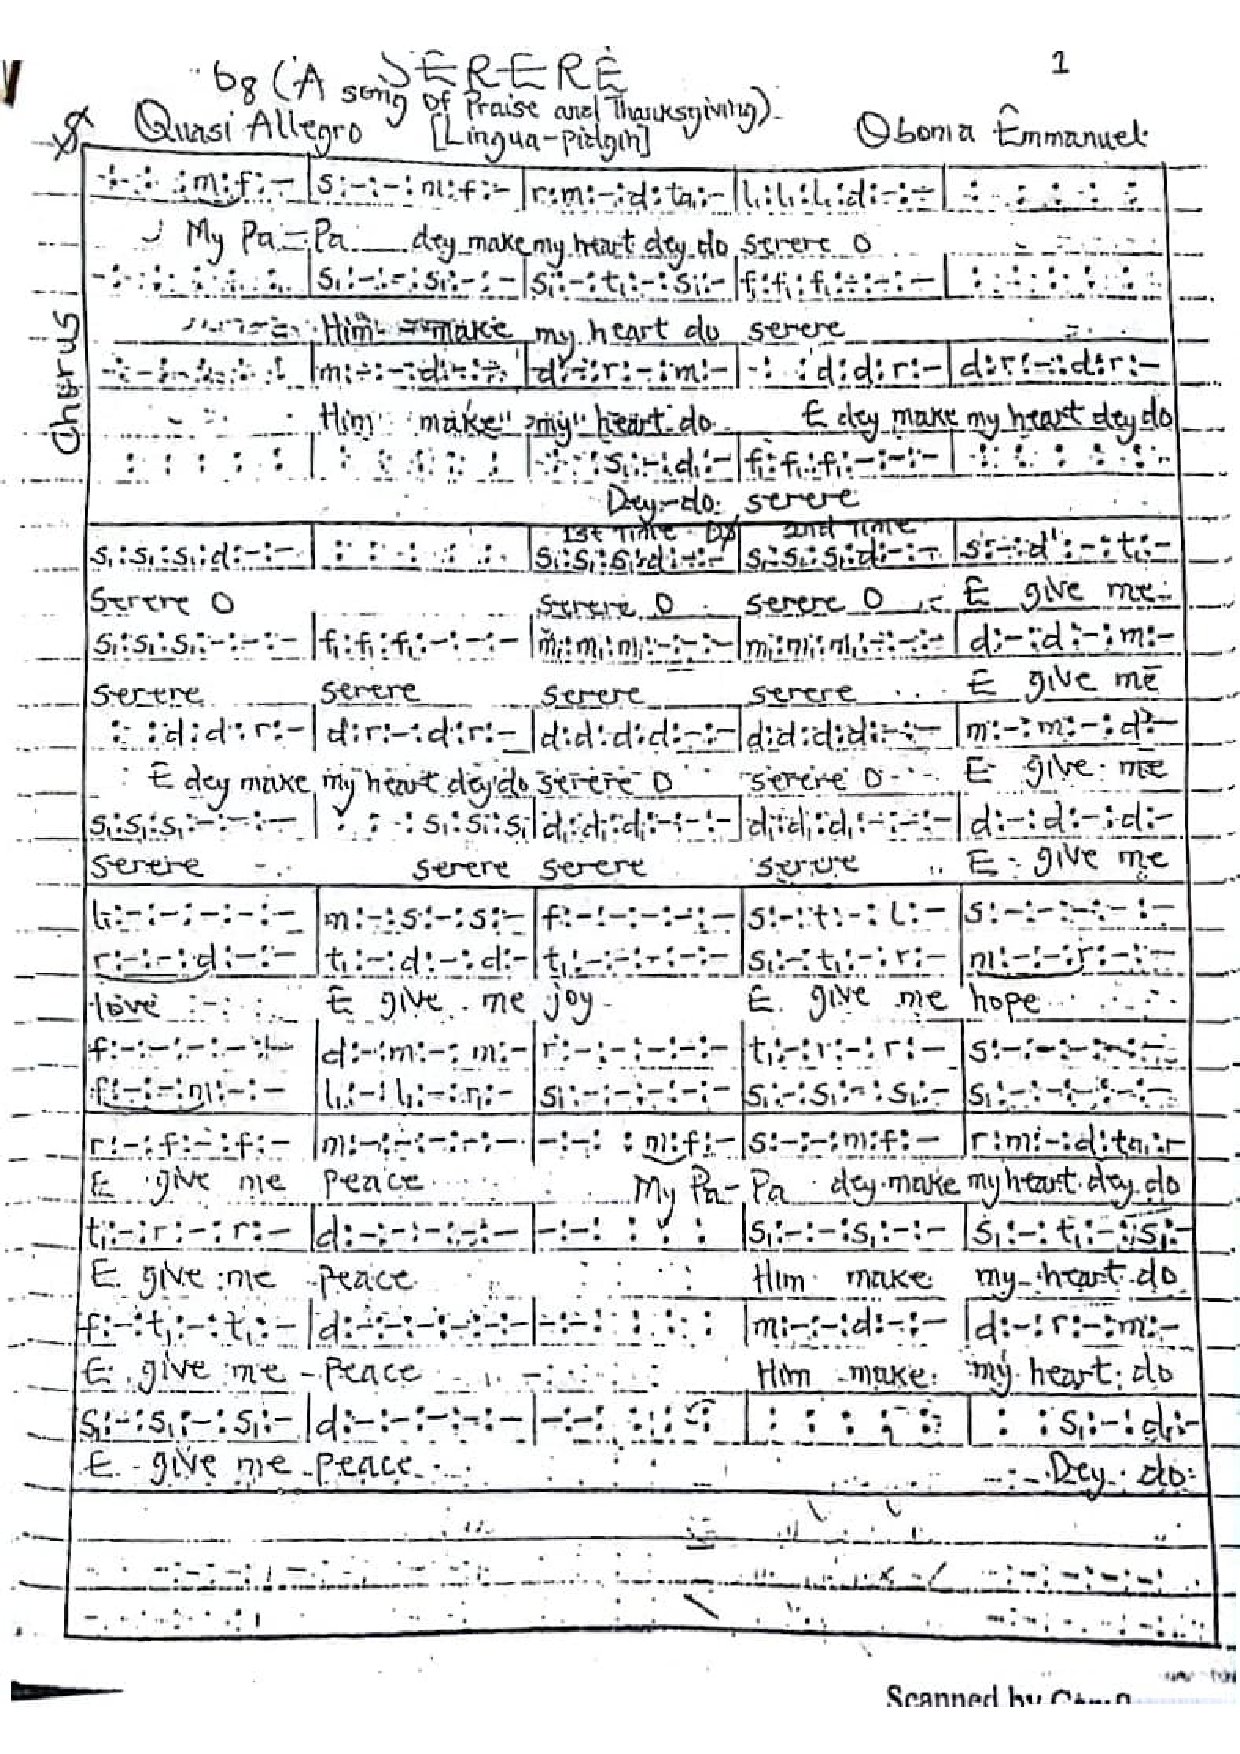 SERERE
1
68 (A song of Praise and Thanksgiving)
Quasi Allegro [Lingua-Pidgin] Obonia Emmanuel
Chorus
:m:f:- |s:-:-:m:f:-|r:m:-:d:ta₁:-|l₁:l₁:l₁:d:-:-
My Pa-Pa dey make my heart dey do serere O
s₁:-:-:s₁:-:-|s₁:-:t₁:-:s₁:-|f₁:f₁:f₁:-:-:-
Him make my heart do serere
m:-:-:d:-:-|d:-:r:-:m:-|: :d:d:r:-|d:r:-:d:r:-
Him make my heart do E dey make my heart dey do
s₁:-:d₁:-|f₁:f₁:f₁:-:-:-
Dey do serere
1st Time 2nd Time
s₁:s₁:s₁:d:-:-|: : : : :|s₁:s₁:s₁:d:-:-|s₁:s₁:s₁:d:-:-|s:-:d':-:t:-
Serere O serere O serere O E give me
s₁:s₁:s₁:-:-:-|f₁:f₁:f₁:-:-:-|m₁:m₁:m₁:-:-:-|m₁:m₁:m₁:-:-:-|d:-:d:-:m:-
serere serere serere serere E give me
: :d:d:r:-|d:r:-:d:r:-|d:d:d:d:-:-|d:d:d:d:-:-|m:-:m:-:d:-
E dey make my heart dey do serere O serere O E give me
s₁:s₁:s₁:-:-:-|: : :s₁:s₁:s₁|d₁:d₁:d₁:-:-:-|d₁:d₁:d₁:-:-:-|d:-:d:-:d:-
serere serere serere serere E give me
l:-:-:-:-:-|m:-:s:-:s:-|f:-:-:-:-:-|s:-:t:-:l:-|s:-:-:-:-:-
r:-:-:d:-:-|t₁:-:d:-:d:-|t₁:-:-:-:-:-|s₁:-:t₁:-:r:-|m:-:-:r:-:-
love E give me joy E give me hope
f:-:-:-:-:-|d:-:m:-:m:-|r:-:-:-:-:-|t₁:-:r:-:r:-|s:-:-:-:-:-
f:-:-:m:-:-|l₁:-:l₁:-:l₁:-|s₁:-:-:-:-:-|s₁:-:s₁:-:s₁:-|s₁:-:-:-:-:-
r:-:f:-:f:-|m:-:-:-:-:-|-:-: :m:f:-|s:-:-:m:f:-|r:m:-:d:ta₁:-
E give me Peace My Pa-Pa dey make my heart dey do
t₁:-:r:-:r:-|d:-:-:-:-:-|-:-: : : :|s₁:-:-:s₁:-:-|s₁:-:t₁:-:s₁:-
E give me peace Him make my heart do
f:-:t₁:-:t₁:-|d:-:-:-:-:-|-:-: : : :|m:-:-:d:-:-|d:-:r:-:m:-
E give me Peace Him make my heart do
s₁:-:s₁:-:s₁:-|d:-:-:-:-:-|-:-: : : :|: : : : :|: :s₁:-:d₁:-
E give me Peace Dey do
Scanned by